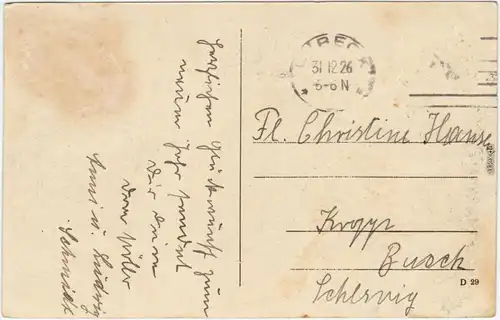 Herzlichen Glückwunsch zum
neuen Jahr sendet
Dir Deine
Anni u. Ludwig
Schmidt
LÜBECK
31.12.26
5-6 N
Frl. Christine Hansen
Kropp
Busch
Schleswig
D 29